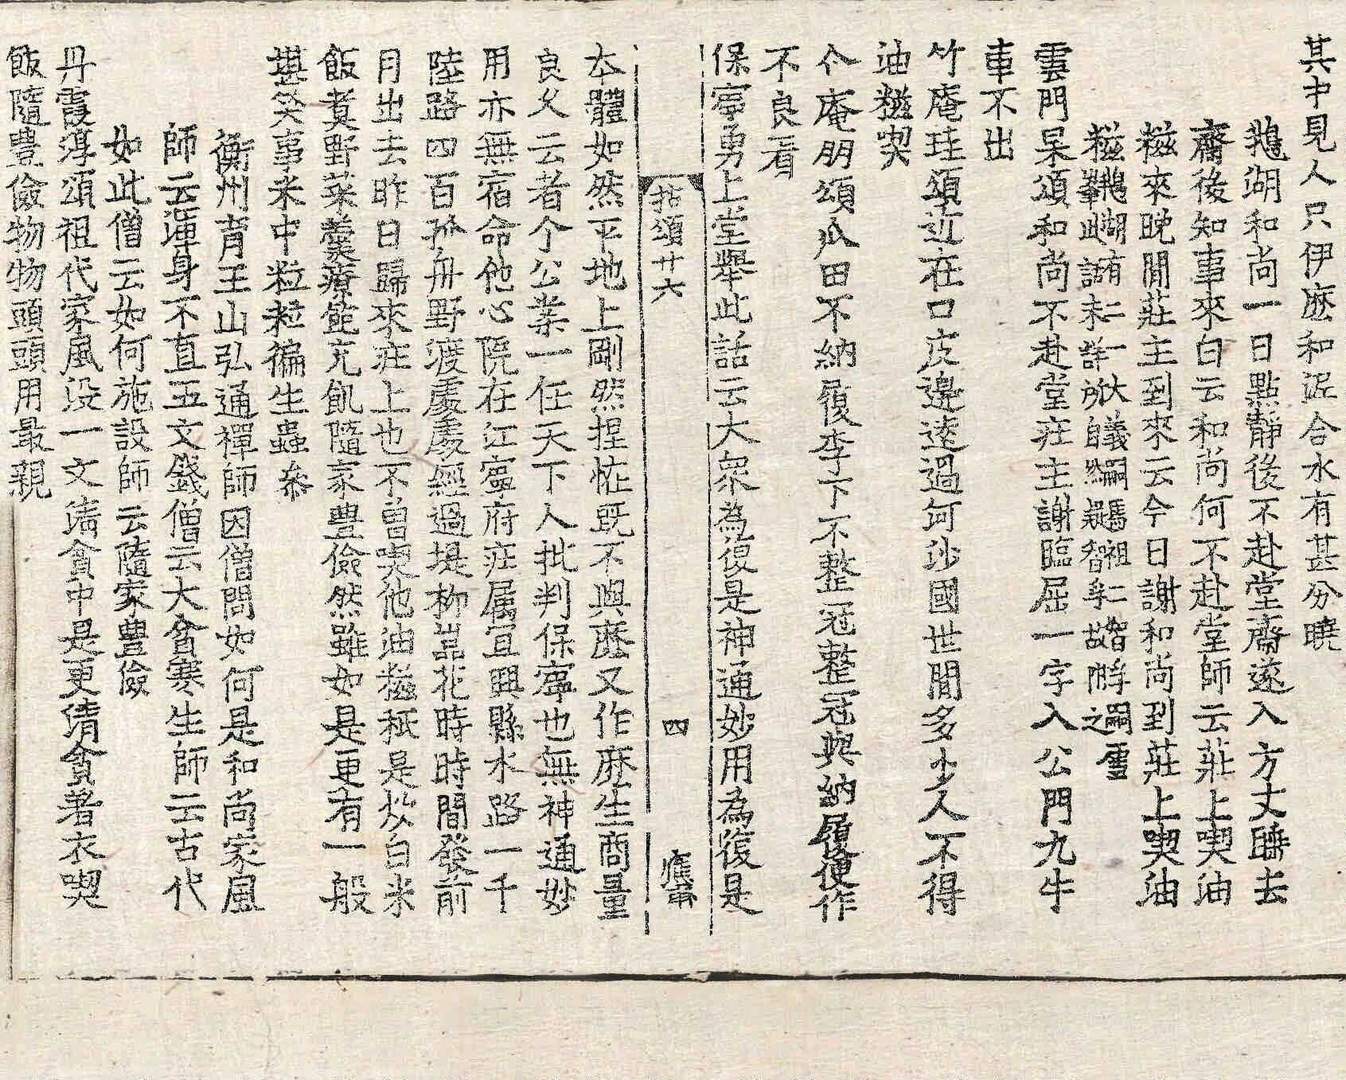 其中見人只伊麽和泥合水有甚分曉
鵞湖和尚一日點靜後不赴堂齋遂入方丈睡去
齋後知事來白云和尚何不赴堂師云莊上喫油
糍來晚閒莊主到來云今日謝和尚到莊上喫油
糍鵞湖有二一大義嗣馬祖二智孚嗣雪
峯此話未詳所自然疑智孚故附之
雲門杲頌和尚不赴堂庄主謝臨屈一字入公門九牛
車不出
竹庵珪頌近在口皮邊遠過河沙國世間多少人不得
油糍喫
仐庵朋頌瓜田不納履李下不整冠整冠與納履便作
不良看
保寧勇上堂舉此話云大衆為復是神通妙用為復是
拈頌廿六 四
本體如然平地上剛然捏恠既不與麽又作麽生商量
良久云者个公案一任天下人批判保寧也無神通妙
用亦無宿命他心院在江寧府庄属冝興縣水路一千
陸路四百孤舟野渡處處經過堤柳岩花時時間發前
月出去昨日歸來庄上也不曽喫他油糍秪是炊白米
飯煮野菜羹療飢充飢隨家豊儉然雖如是更有一般
堪笑事米中粒粒徧生蟲叅
衡州育王山弘通禪師因僧問如何是和尚家風
師云渾身不直五文錢僧云大貧寒生師云古代
如此僧云如何施設師云隨家豊儉
丹霞淳頌祖代家風没一文清貧中是更清貧著衣喫
飯隨豊儉物物頭頭用最親